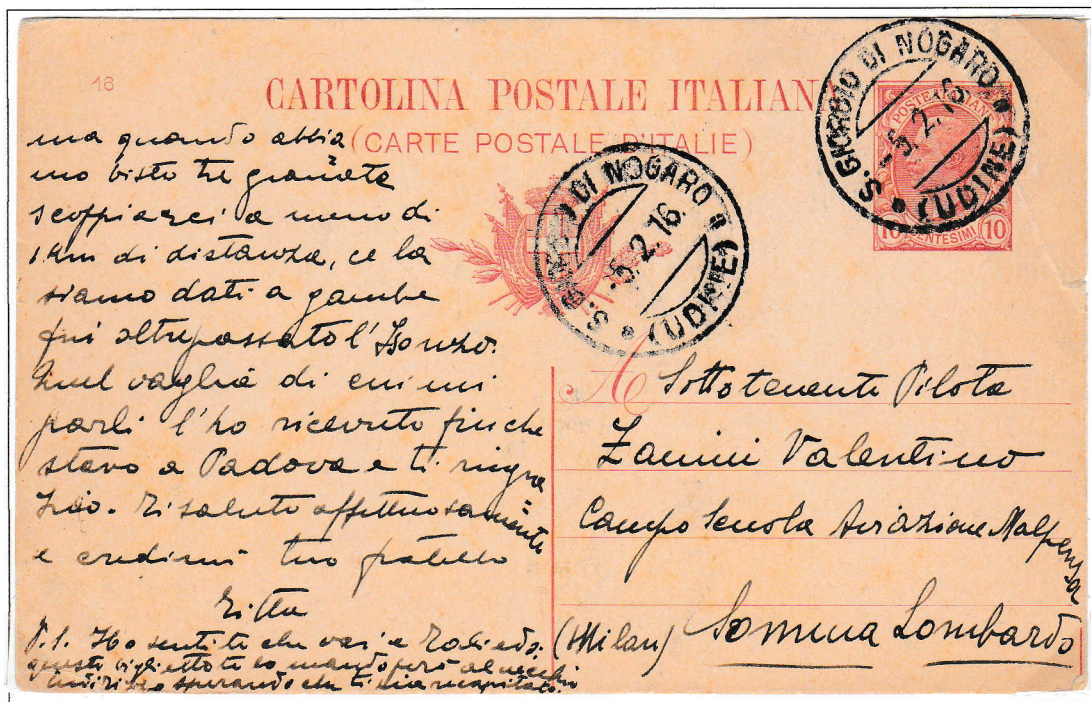 16
CARTOLINA POSTALE ITALIANA
(CARTE POSTALE D'ITALIE)
S. GIORGIO DI NOGARO (UDINE)
-5.2.16
S. GIORGIO DI NOGARO (UDINE)
-5.2.16
POSTE ITALIANE
10 CENTESIMI 10
ma quando abbia
mo visto tre granate
scoppiarci a meno di
1 km di distanza, ce la
siamo dati a gambe
fin oltrepassato l'Isonzo.
Quel vaglia di cui mi
parli l'ho ricevuto finche
stavo a Padova e ti ringra
zio. Ti saluto affettuosamente
e credimi tuo fratello
P.S. Ho sentito che vai a
questo biglietto te lo mando però al vecchio
indirizzo sperando che ti sia recapitato.
A Sottotenente Pilota
Zanini Valentino
Campo Scuola Aviazione Malpensa
(Milan) Somma Lombardo